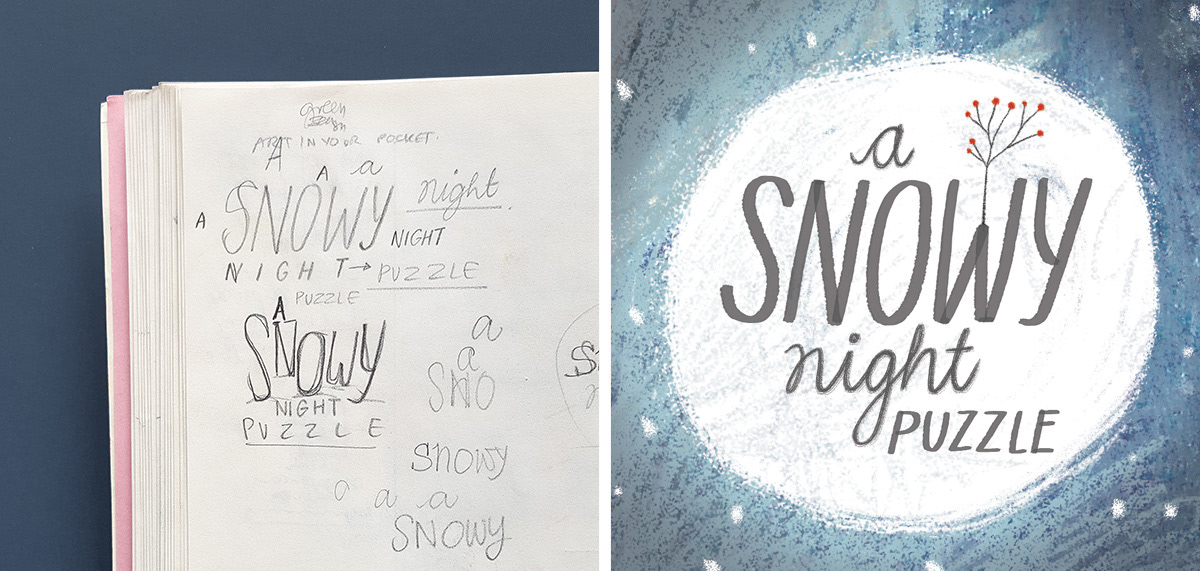 Green
Design
ART IN YOUR POCKET.
A
A a
A SNOWY night.
NIGHT
NIGHT→PUZZLE
PUZZLE
A
SNOWY
NIGHT
PUZZLE
a
a
SNO
SNOWY
a a a
SNOWY
a
SNOWY
night
PUZZLE